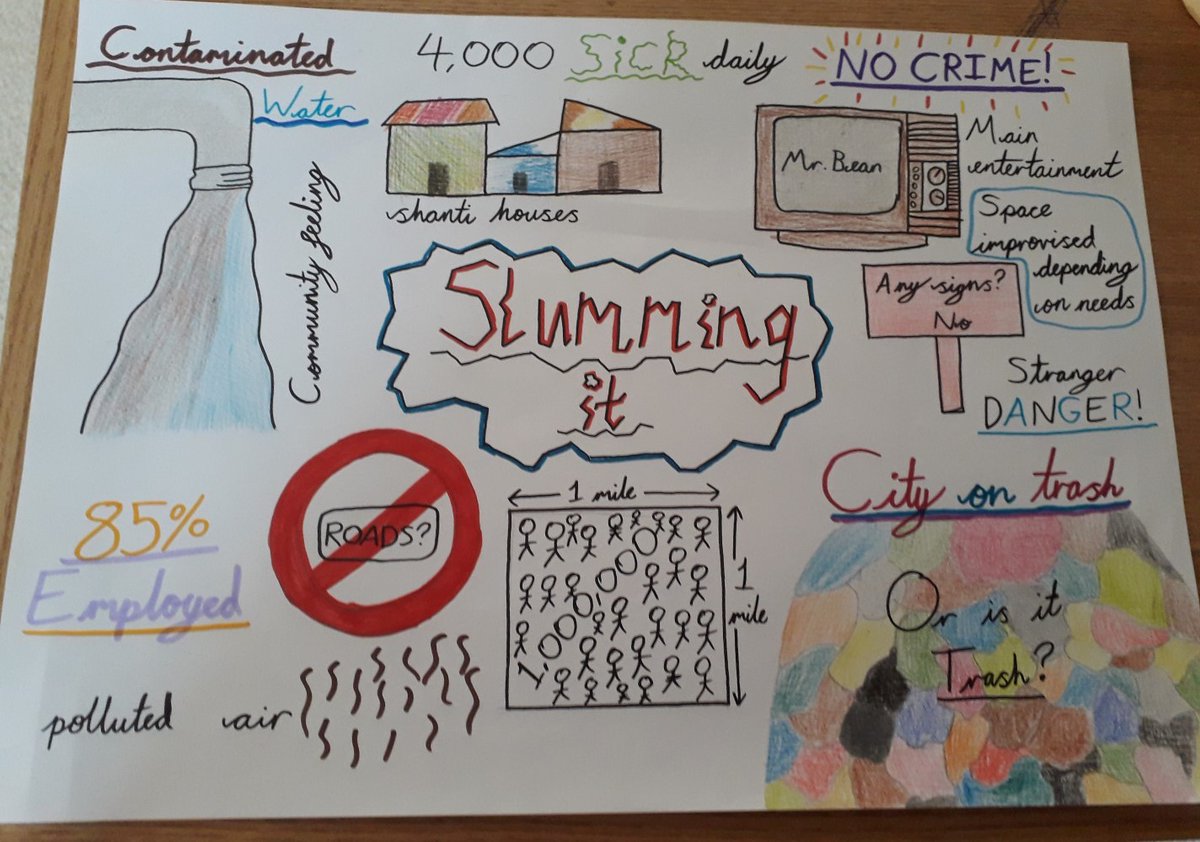 Contaminated
Water
4,000 Sick daily
NO CRIME!
Community feeling
shanti houses
Mr. Bean
Main
entertainment
Space
improvised
depending
on needs
Any signs?
No
Stranger
DANGER!
Slumming
it
85%
Employed
ROADS?
polluted air
1 mile
1
mile
1,000,000
City on trash
Or is it
Trash?